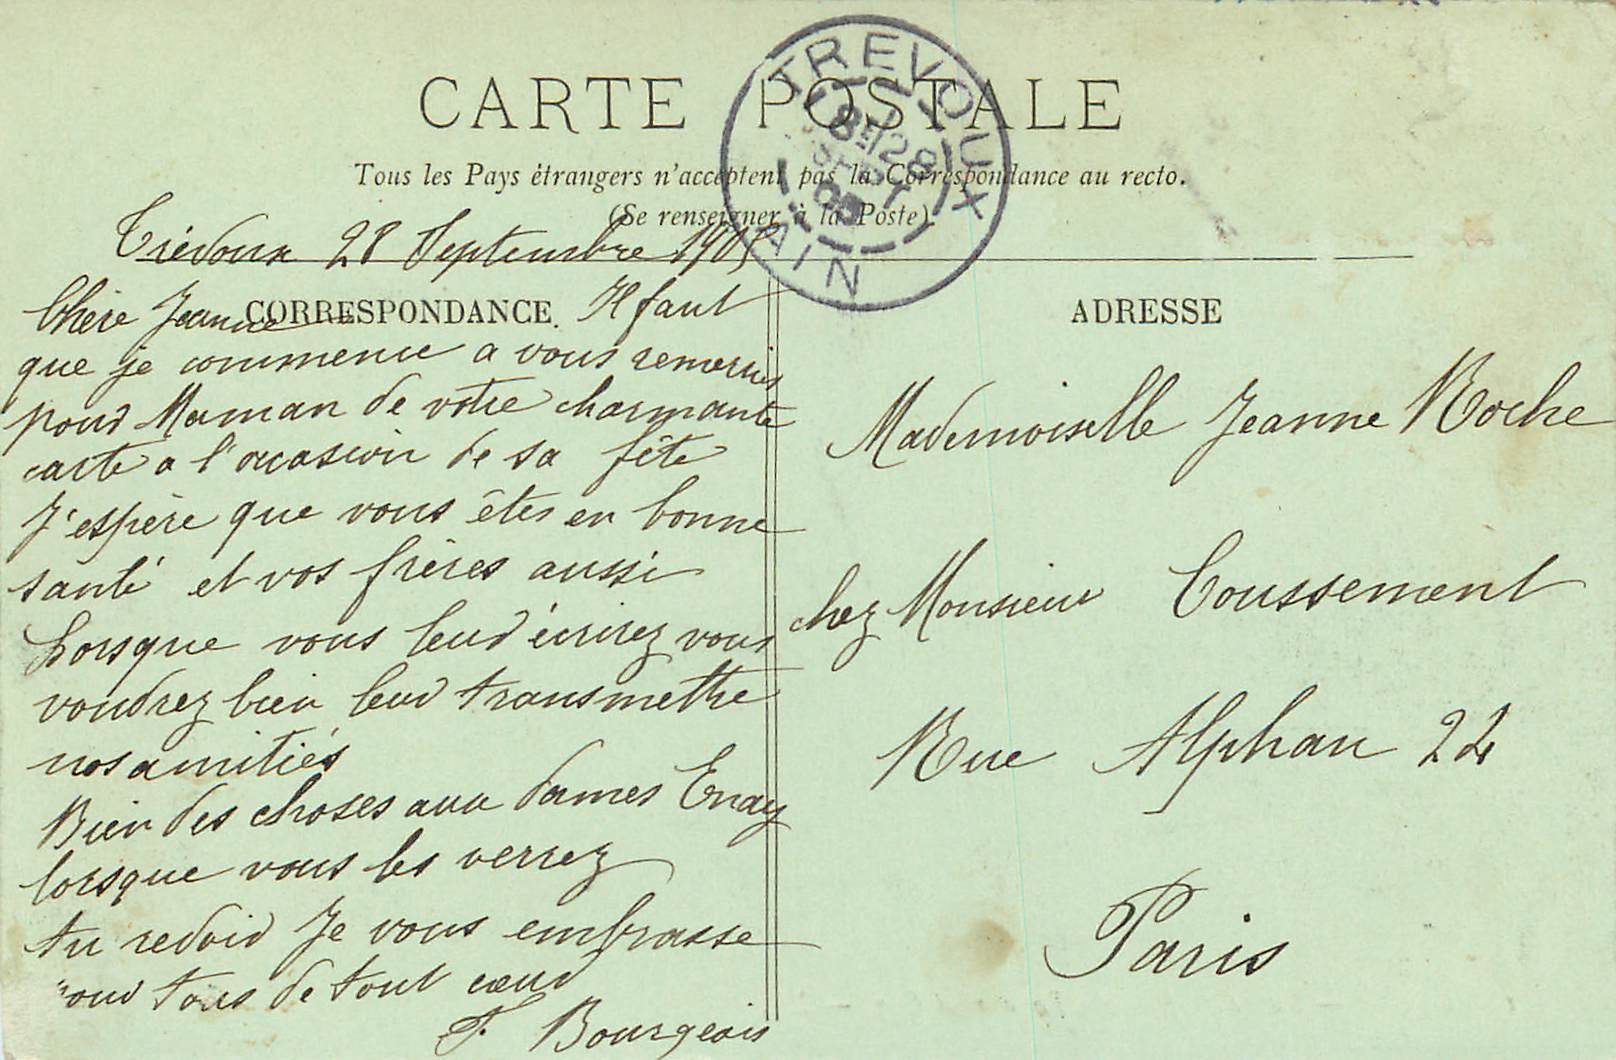 CARTE POSTALE
Tous les Pays étrangers n'acceptent pas la Correspondance au recto.
(Se renseigner à la Poste).
TREVOUX
8E/28
SEPT
05
AIN
Trévoux 28 Septembre 1905
CORRESPONDANCE.
Chère Jeanne Il faut
que je commence a vous remercier
pour Maman de votre charmante
carte a l'ocasion de sa fête
J'espère que vous êtes en bonne
santé et vos frères aussi
Lorsque vous leur écrirez vous
voudrez bien leur transmettre
nos amitiés
Bien des choses aux dames Enay
lorsque vous les verrez
Au revoir Je vous embrasse
pour tous de tout cœur
F. Bourgeois
ADRESSE
Mademoiselle Jeanne Roche
chez Monsieur Coussement
Rue Alphan 22
Paris